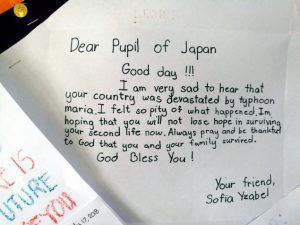 Dear Pupil of Japan
Good day !!!
I am very sad to hear that
your country was devastated by typhoon
maria. I felt so pity of what happened. Im
hoping that you will not lose hope in surviving
your second life now. Always pray and be thankful
to God that you and your family survived.
God Bless You !
Your friend,
Sofia Yzabel
IS
UTURE
YOU
17, 2018